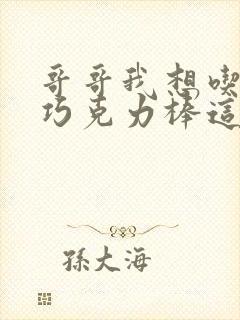 哥哥我想喫
巧克力棒這
孫大海